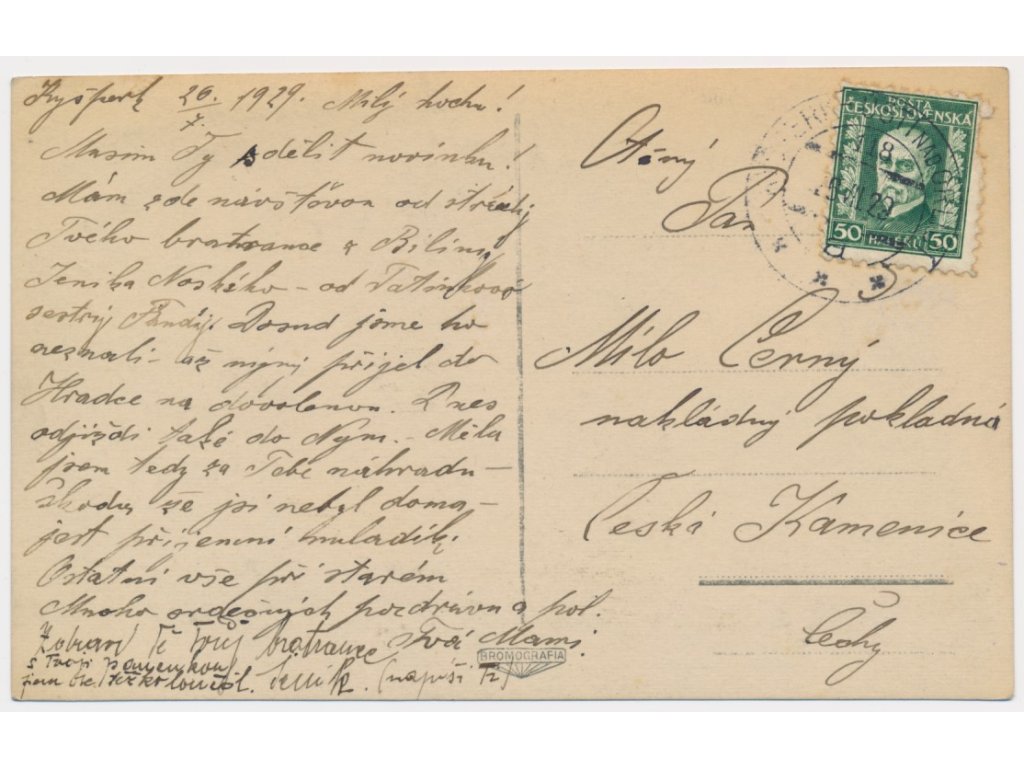 Kyšperk 26/7. 1929. Milý hochu!
Musím Ty sdělit novinku!
Mám zde návštěvou od středy
Tvého bratrance z Bíliny
Jeníka Noského - od Tatínkové
sestry Fándy! Dosud jsme ho
neznali - až nyní přijel do
Hradce na dovolenou. Dnes
odjíždí také do Nym. - Měla
jsem tedy za Tebe náhradu -
škodu že jsi nebyl doma -
jest příjemní mladík.
Ostatní vše při starém
Mnoho srdečných pozdravu a pol.
Tvá Mami.
Zdraví Tě Tvůj bratranec
s Tvoji panenkou
jsem se těžko loučil. Jeník. (napiš Ti)
BROMOGRAFIA
POŠTA
ČESKOSLOVENSKÁ
50 HALÉŘŮ 50
Ctěný
Pan
Milo Černý
nakládný pokladna
Česká Kamenice
Čechy